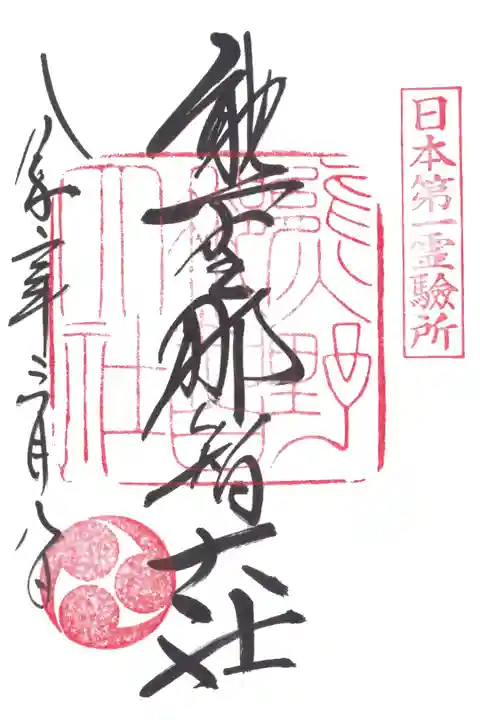 日本第一霊験所
熊野那智大社
熊野那智大社
月八日